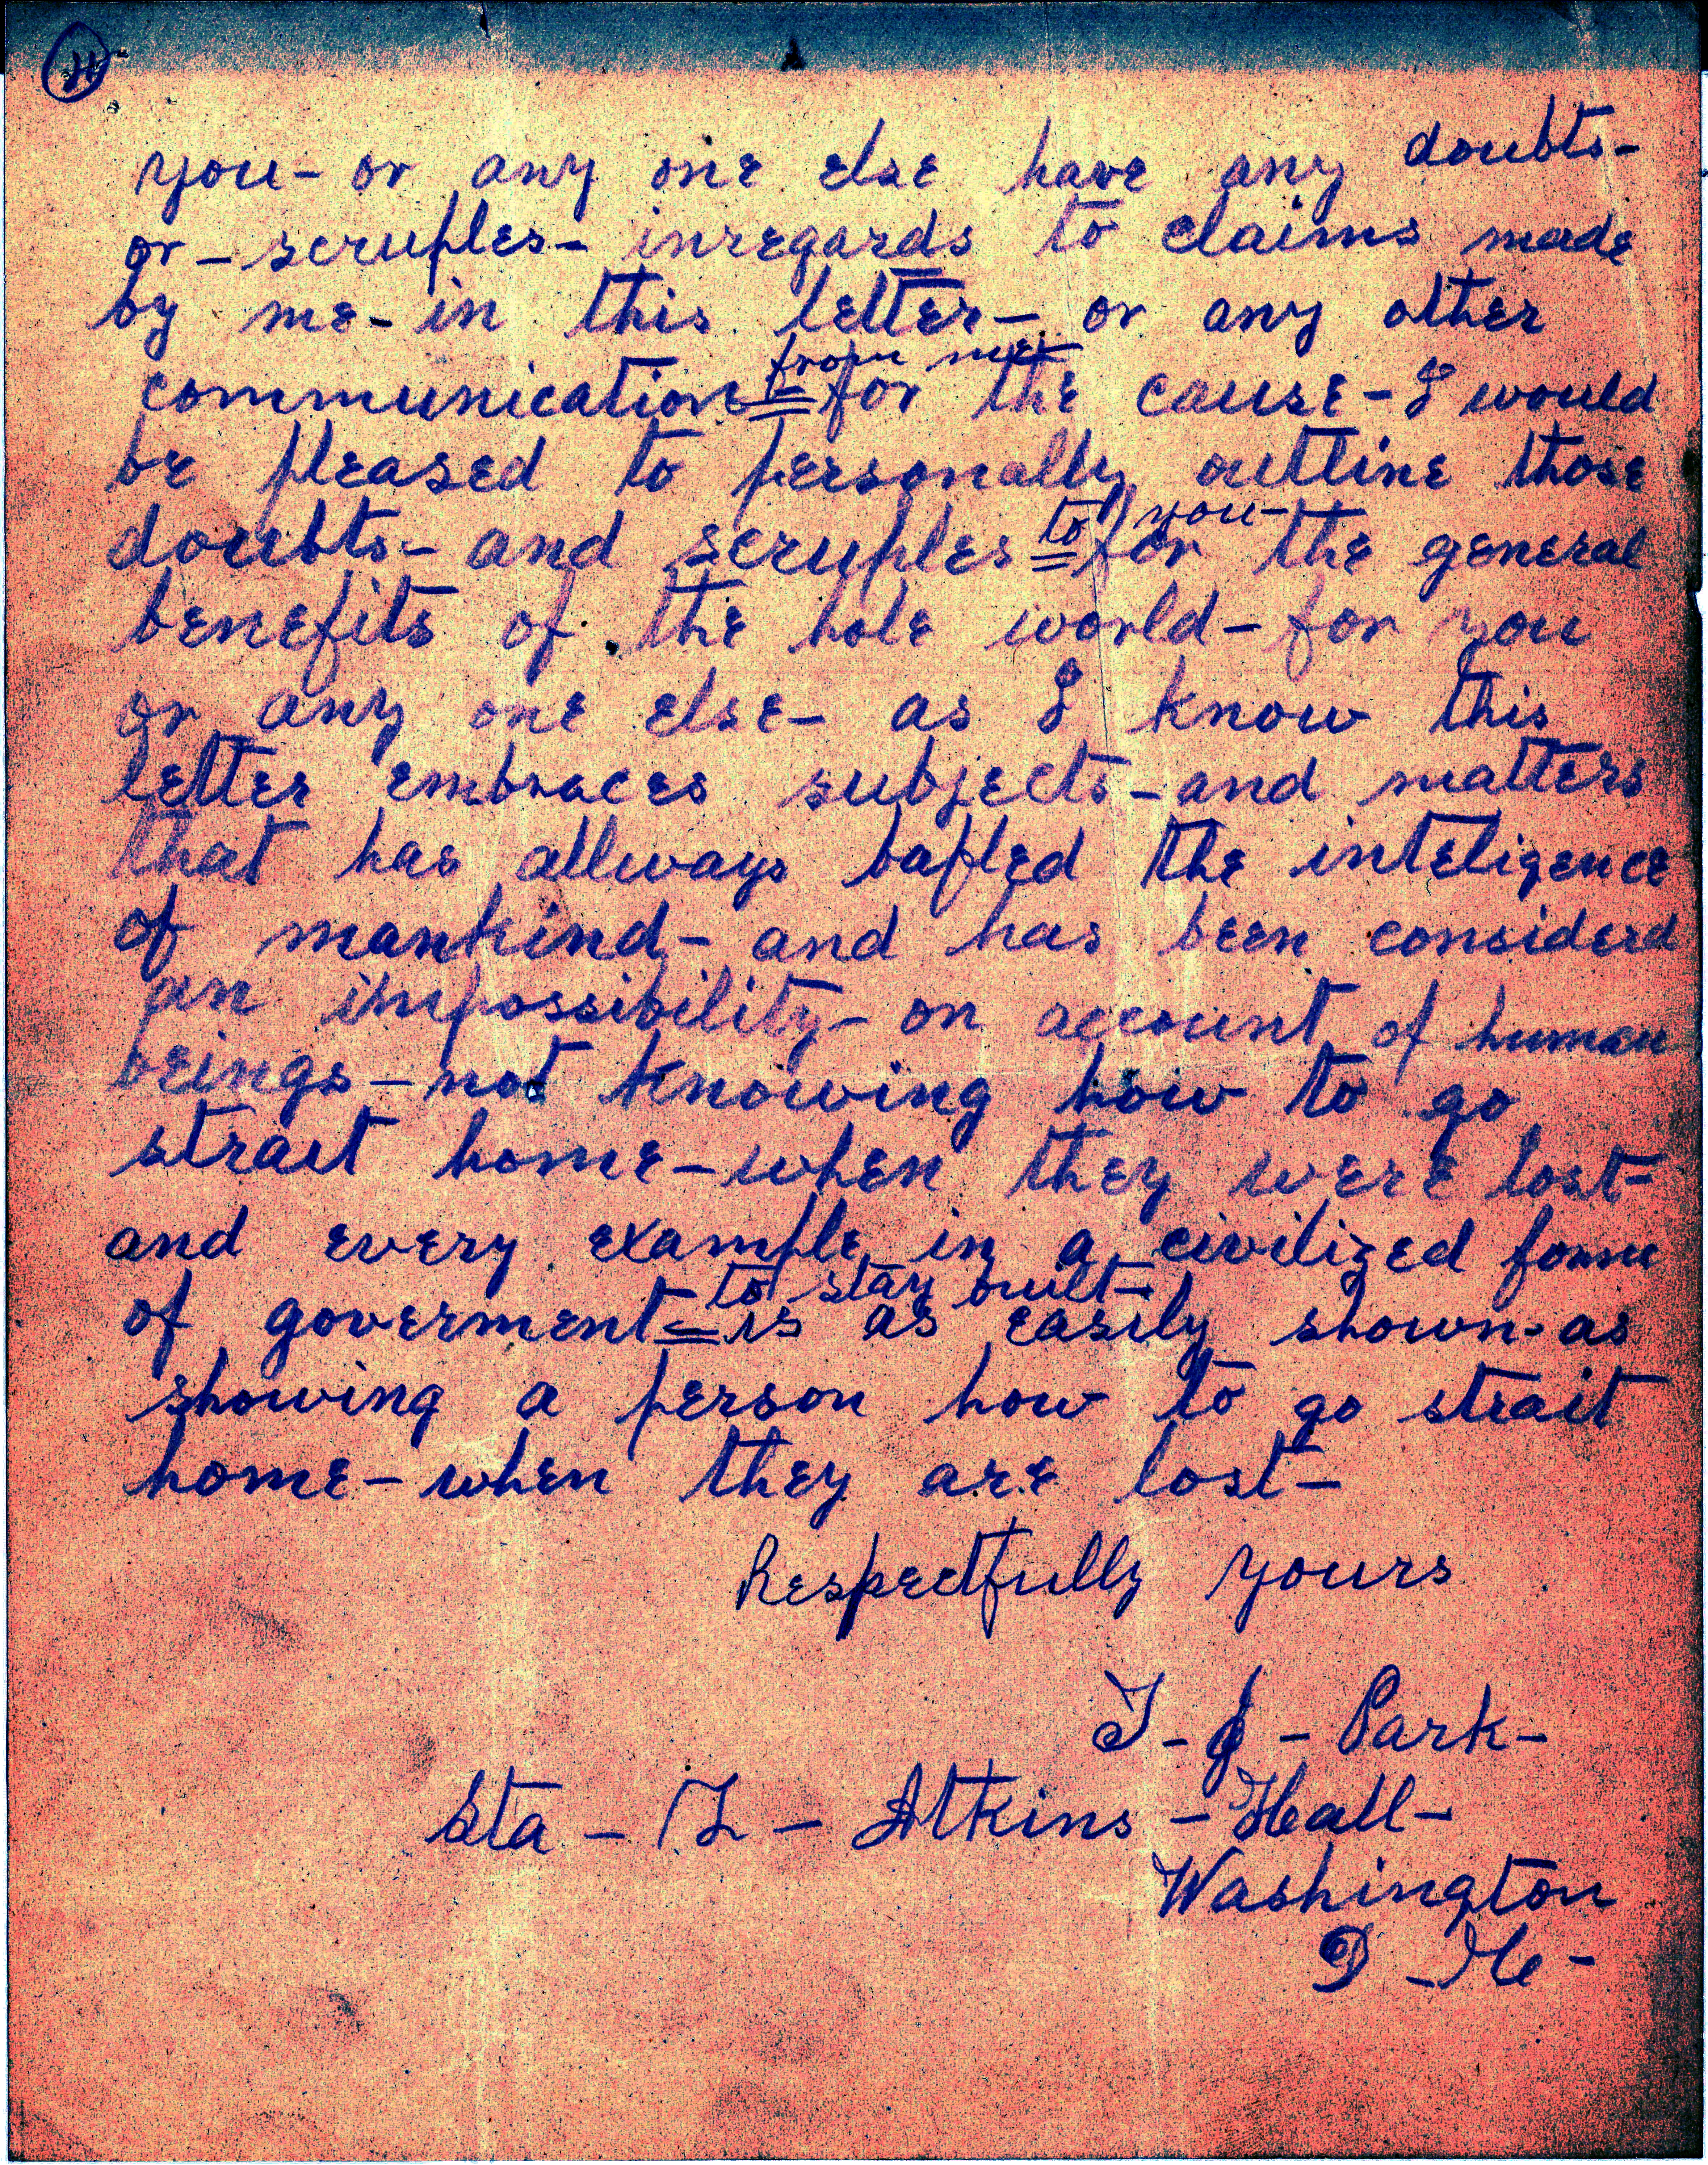 you- or any one else have any doubts-
or- scruples- inregards to claims made
by me- in this letter- or any other
from me-
communication = for the cause- I would
be pleased to personally outline those
to you-
doubts- and scruples = for the general
benefits of the hole world- for you
or any one else- as I know this
letter embraces subjects- and matters
that has allways bafled the inteligence
of mankind- and has been considerd
an impossibility- on account of human
beings- not knowing how to go
strait home- when they were lost-
and every example in a civilized form
to stay built-
of goverment = is as easily shown- as
showing a person how to go strait
home- when they are lost-
Respectfully yours
T- J- Park-
Sta- Atkins- Hall-
Washington
D- C-